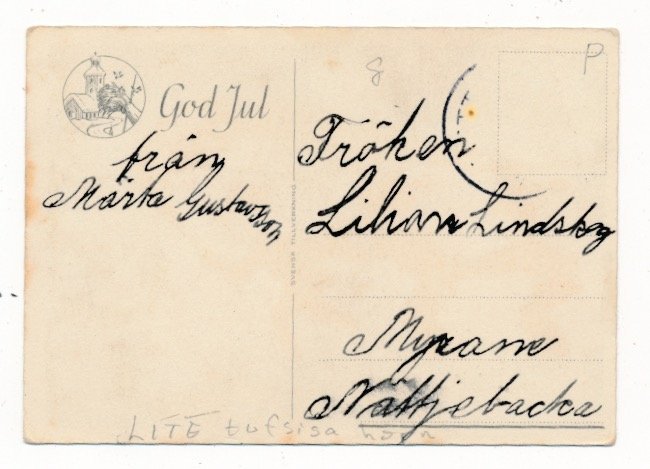 God Jul
från
Märta Gustavsson
SVENSK TILLVERKNING
P
Fröken
Lilian Lindskog
Myrane
Nättjebacka
LITE tufsiga hörn